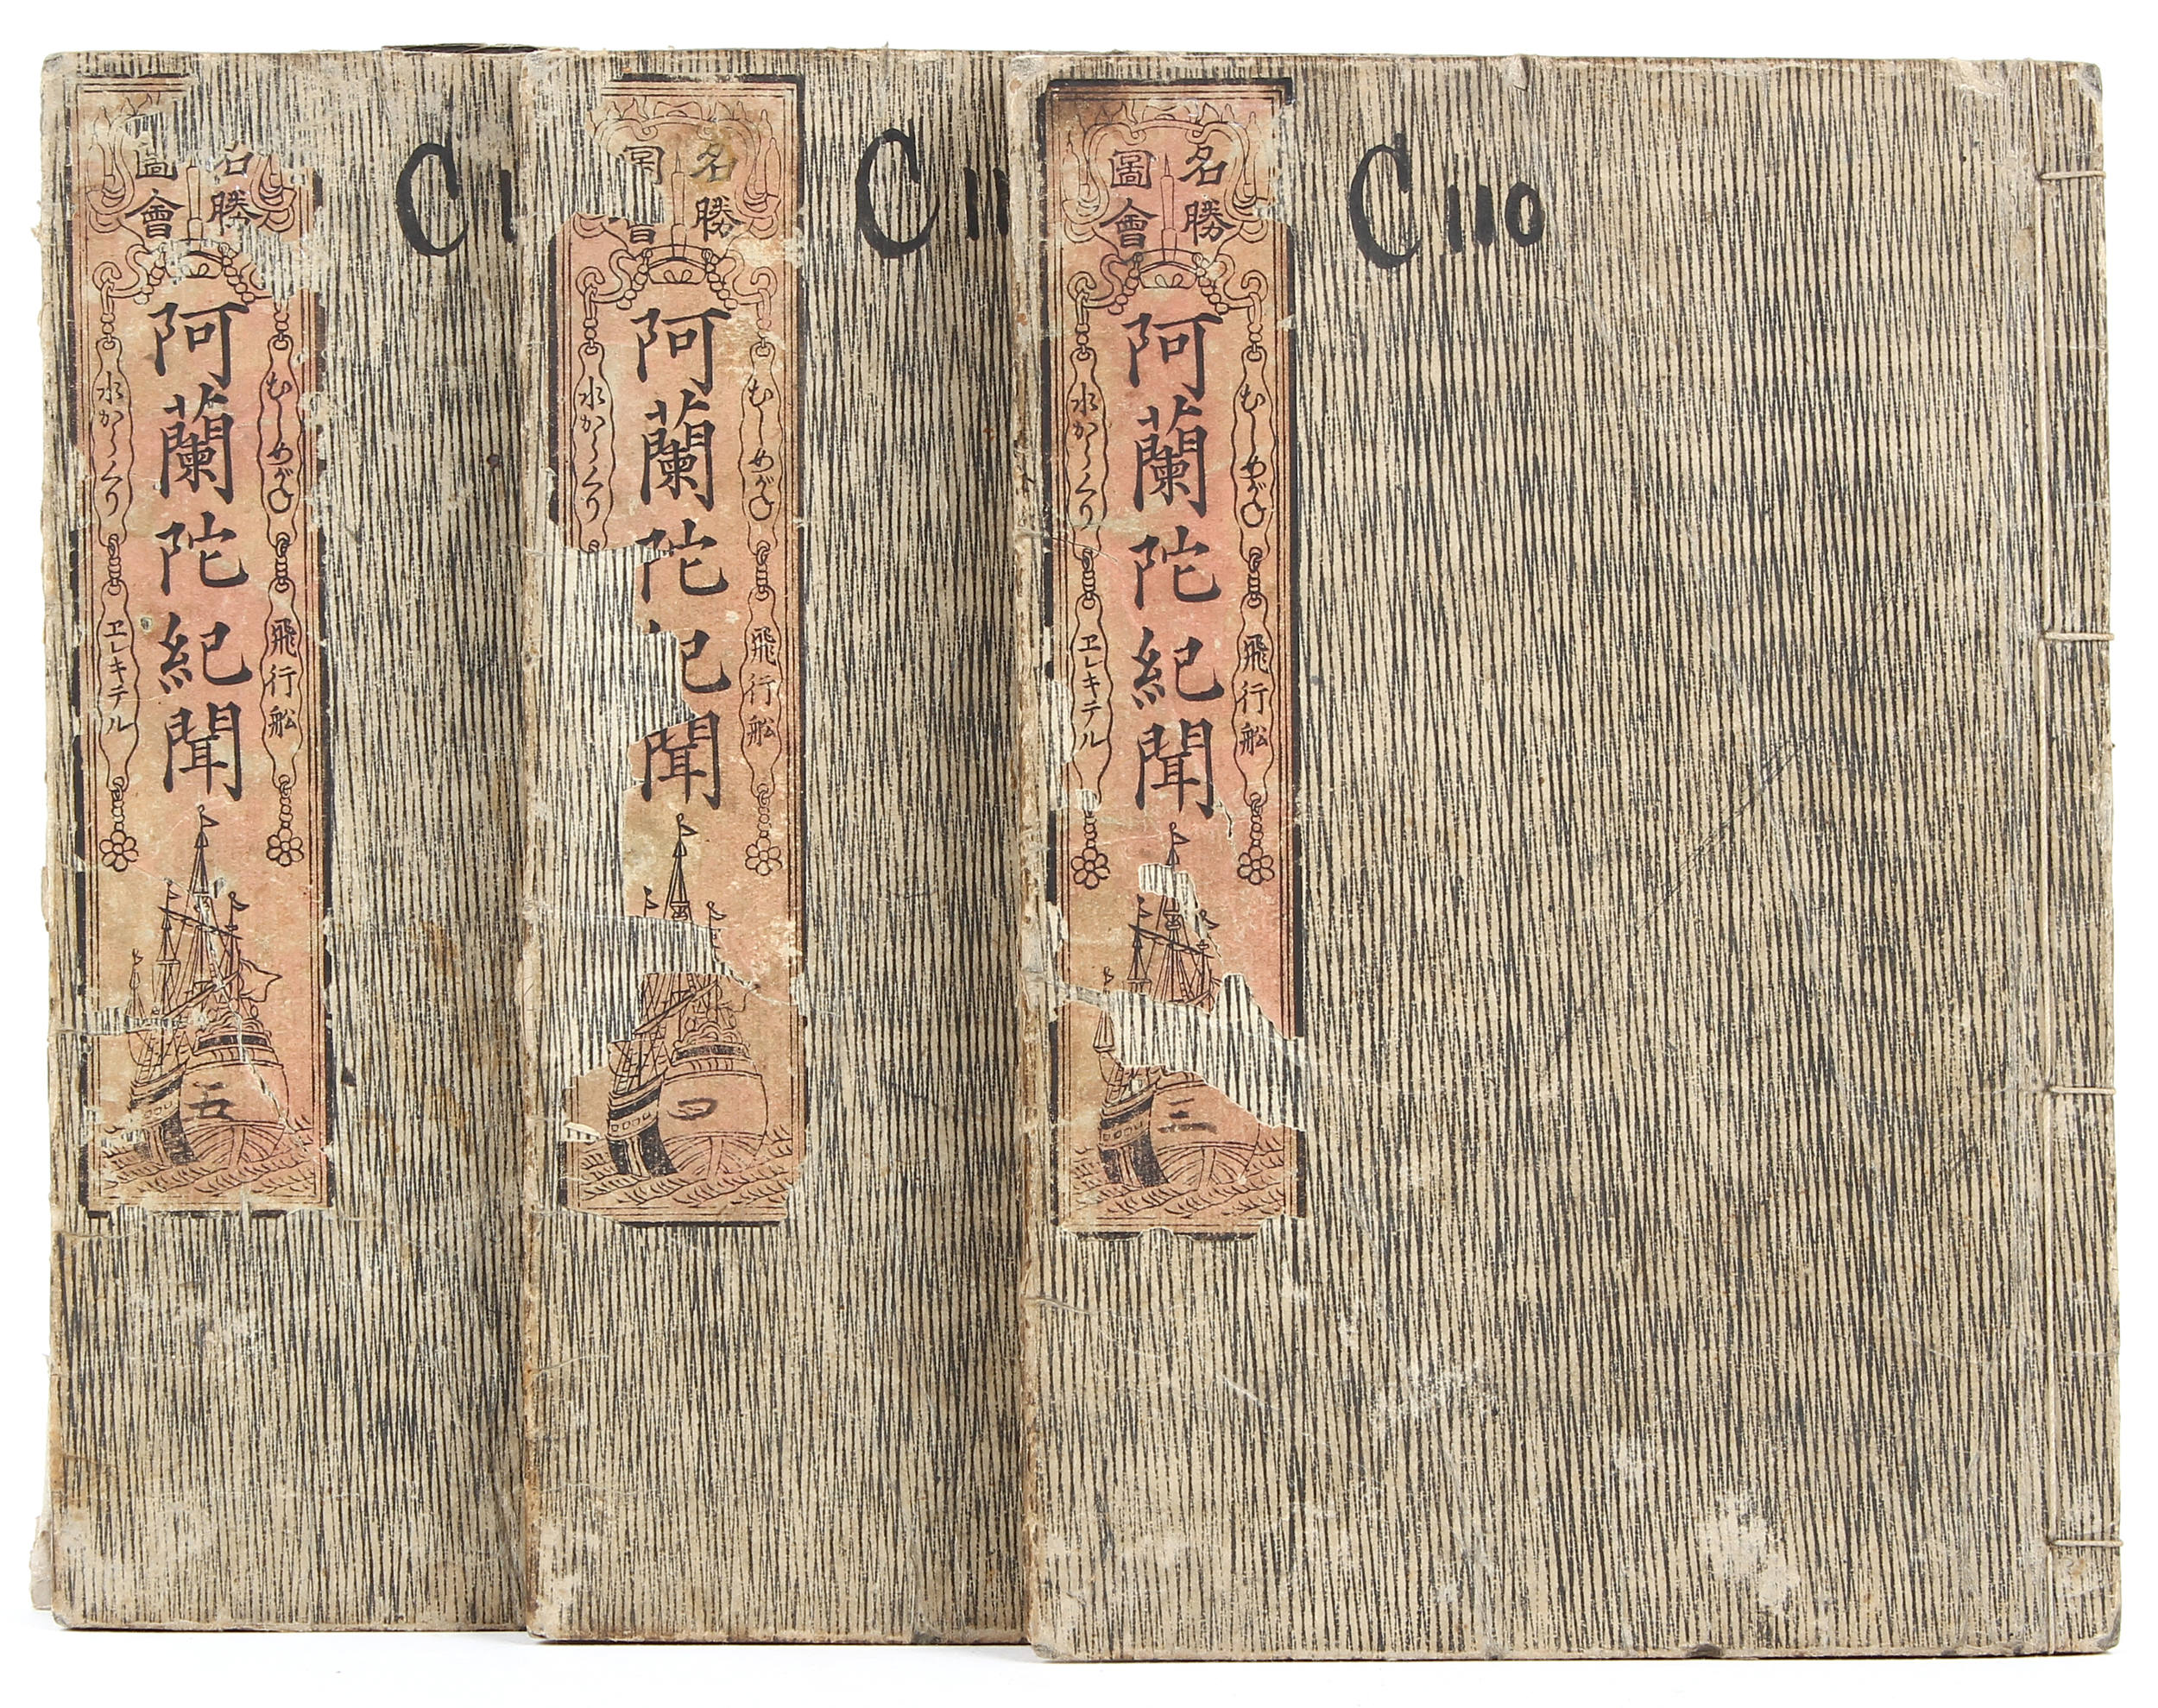 名勝
圖會
むしめがね
飛行舩
阿蘭陀紀聞
水からくり
ヱレキテル
三
C 110
名勝
圖會
むしめがね
飛行舩
阿蘭陀紀聞
水からくり
四
C 11
名勝
圖會
むしめがね
飛行舩
阿蘭陀紀聞
水からくり
ヱレキテル
五
C 1